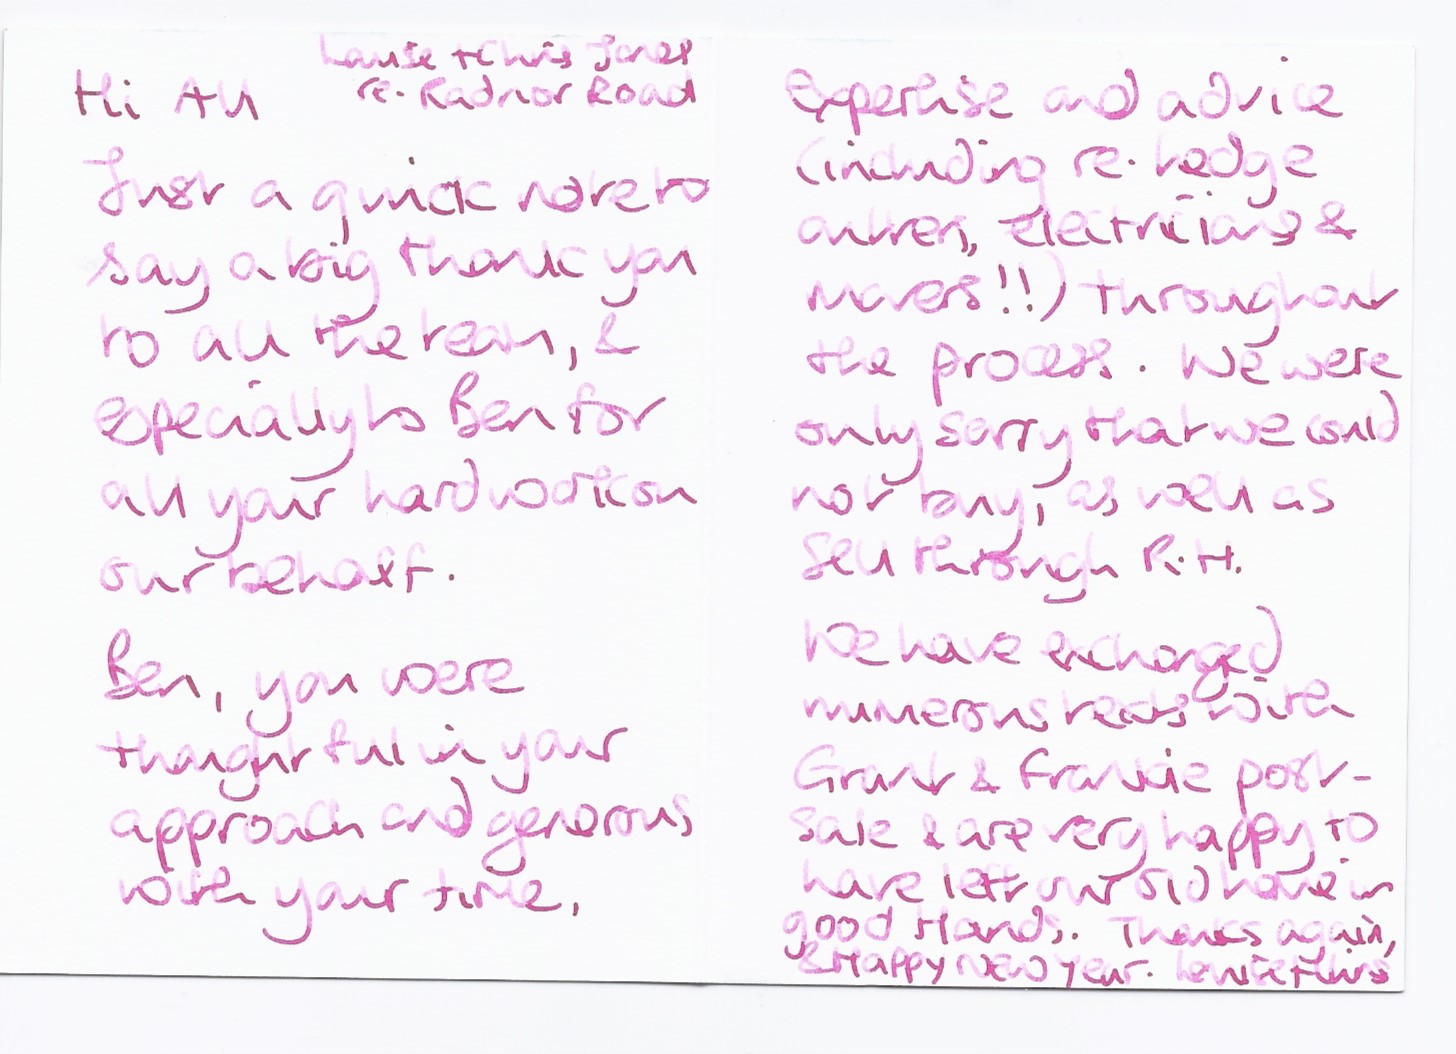 Louise + Chris Jones
re. Radnor Road
Hi All
Just a quick note to
say a big thank you
to all the team, &
especially to Ben for
all your hard work on
our behalf.
Ben, you were
thoughtful in your
approach and generous
with your time,
expertise and advice
(including re. hedge
cutters, electricians &
movers!!) throughout
the process. We were
only sorry that we could
not buy, as well as
sell through R.H.
We have exchanged
numerous texts with
Grant & Frankie post-
sale & are very happy to
have left our old home in
good Hands. Thanks again,
& Happy New Year. Louise + Chris